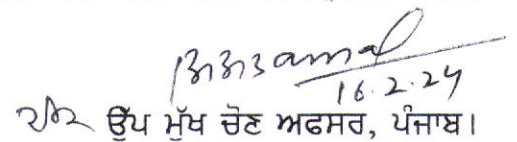 16.2.24
ਉੱਪ ਮੁੱਖ ਚੋਣ ਅਫਸਰ, ਪੰਜਾਬ।